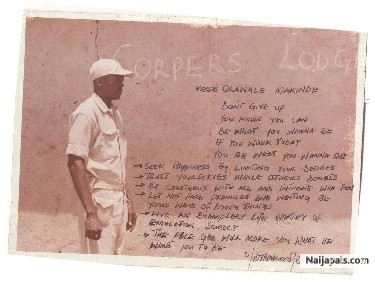 CORPERS LODGE
OLAWALE MAKINDE
DON'T GIVE UP
YOU KNOW YOU CAN
BE WHAT YOU WANNA BE
IF YOU WORK TODAY
YOU BE WHAT YOU WANNA BE
→ SEEK HAPPINESS BY LIMITING YOUR DESIRES
→ TRUST YOURSELVES WHILE OTHERS DOUBTS
→ BE COURTEOUS WITH ALL AND INTIMATE WITH FEW
→ LET NOT YOUR FAMILIES AND NOTHING BE
YOUR WAYS OF DOING THINGS
→ LIVE AN EXAMPLERY LIFE WORTHY OF
EMULATION SURELY
→ THE ABLE GOD WILL MAKE YOU WHAT HE
WANT YOU TO BE
Naijapals.com